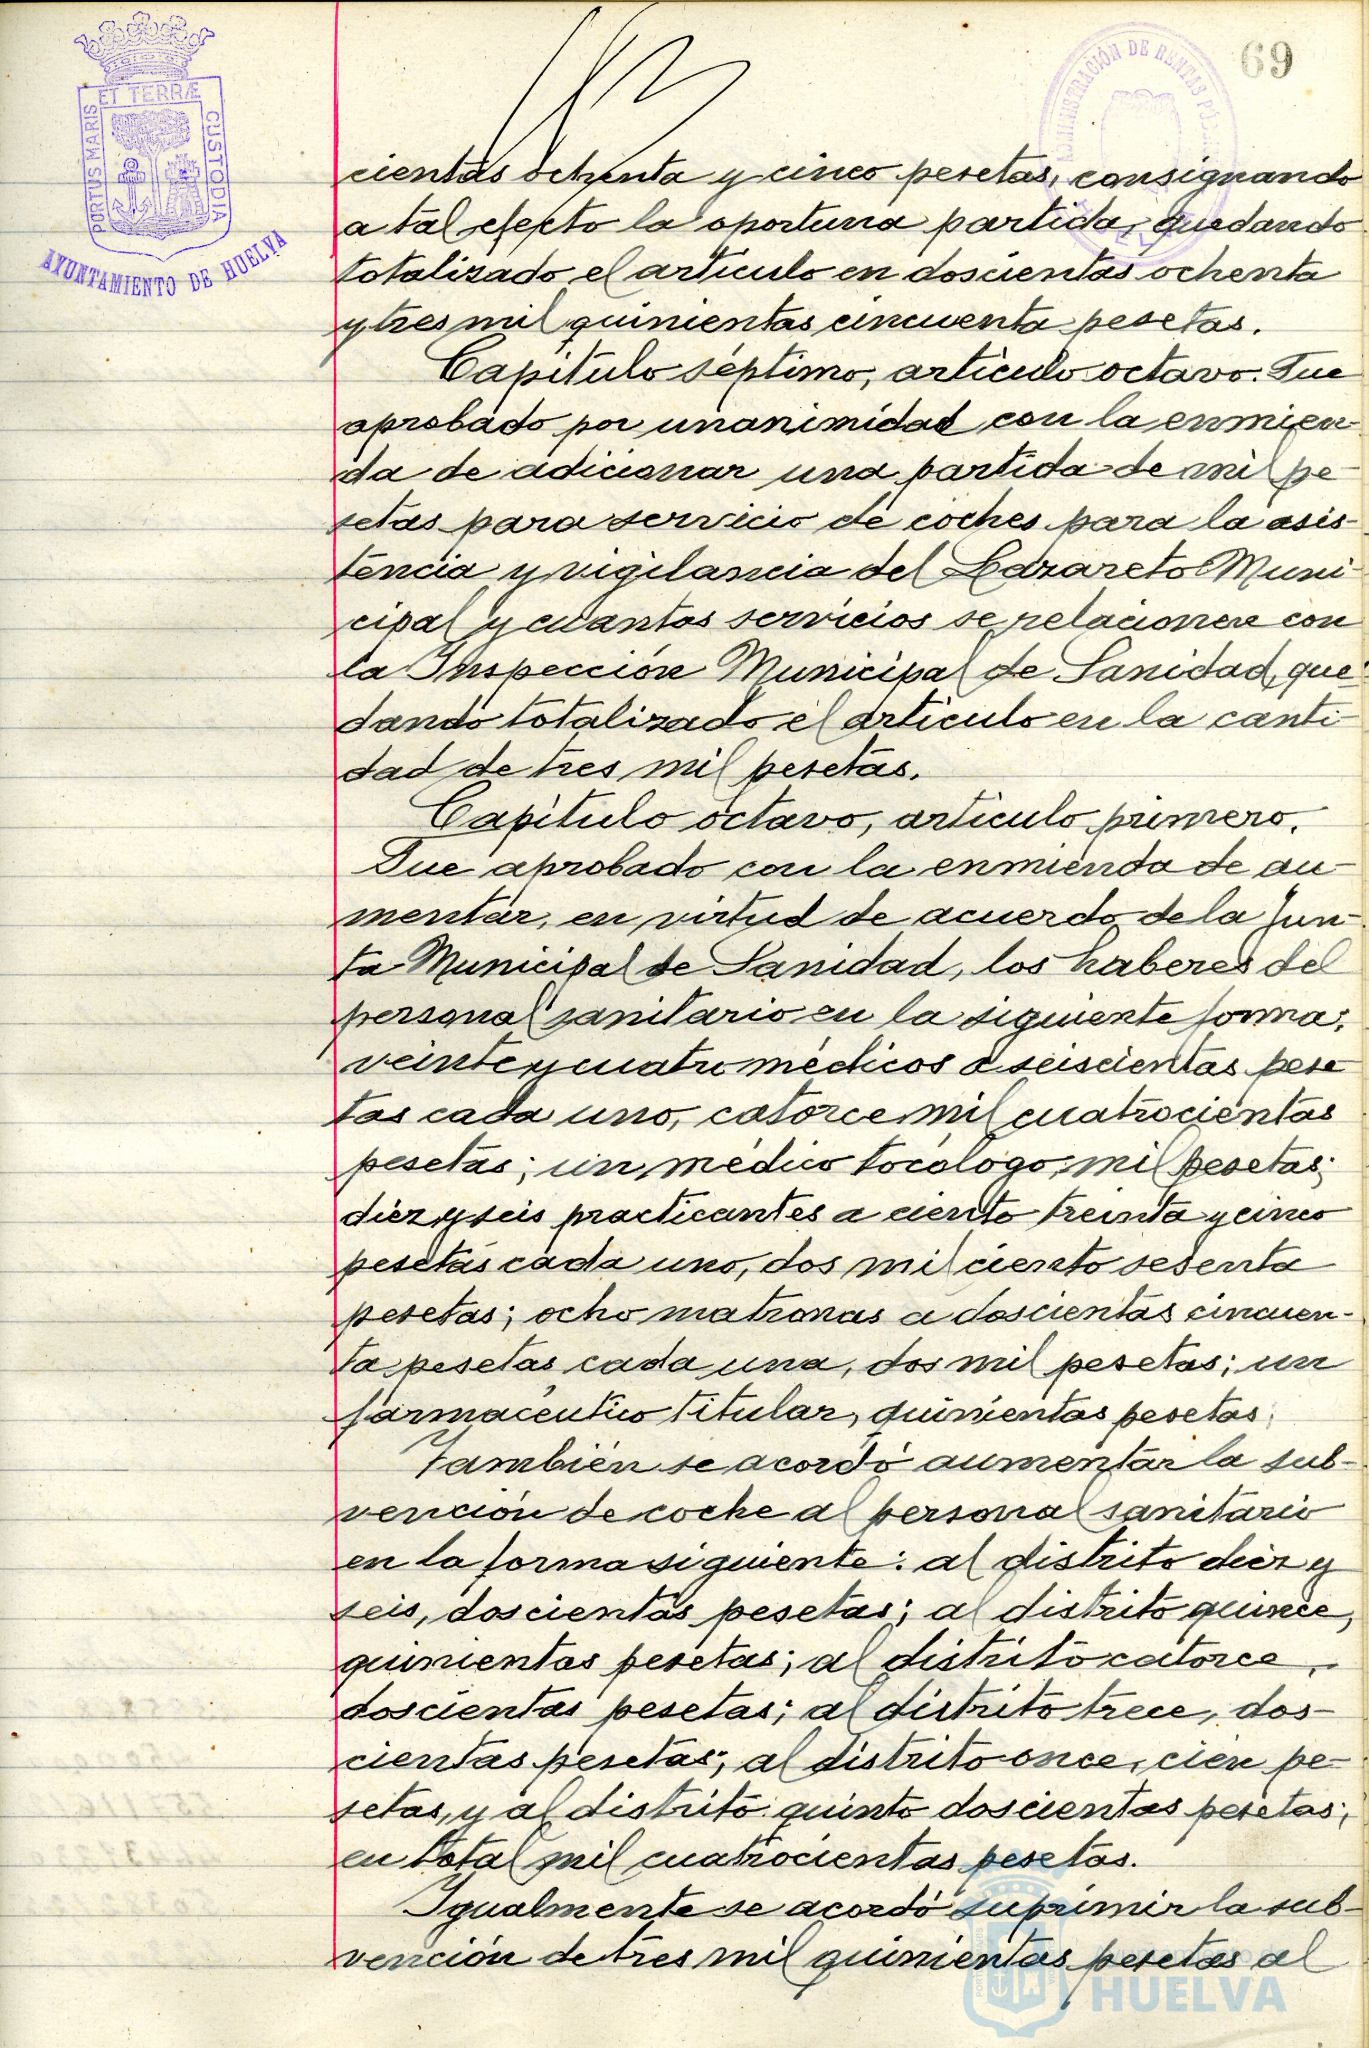 69
ET TERRÆ
PORTUS MARIS
CUSTODIA
AYUNTAMIENTO DE HUELVA
ADMINISTRACIÓN DE RENTAS
cientas ochenta y cinco pesetas, consignando
a tal efecto la oportuna partida, quedando
totalizado el artículo en doscientas ochenta
y tres mil quinientas cincuenta pesetas.
Capítulo séptimo, artículo octavo. Fue
aprobado por unanimidad con la enmien-
da de adicionar una partida de mil pe-
setas para servicio de coches para la asis-
tencia y vigilancia del Lazareto Muni-
cipal y cuantos servicios se relacionen con
la Inspección Municipal de Sanidad, que-
dando totalizado el artículo en la canti-
dad de tres mil pesetas.
Capítulo octavo, artículo primero.
Fue aprobado con la enmienda de au-
mentar, en virtud de acuerdo de la Jun-
ta Municipal de Sanidad, los haberes del
personal sanitario en la siguiente forma:
veinte y cuatro médicos a seiscientas pese-
tas cada uno, catorce mil cuatrocientas
pesetas; un médico tocólogo, mil pesetas;
diez y seis practicantes a ciento treinta y cinco
pesetas cada uno, dos mil ciento sesenta
pesetas; ocho matronas a doscientas cincuen-
ta pesetas cada una, dos mil pesetas; un
farmacéutico titular, quinientas pesetas.
También se acordó aumentar la sub-
vención de coche al personal sanitario
en la forma siguiente: al distrito diez y
seis, doscientas pesetas; al distrito quince,
quinientas pesetas; al distrito catorce,
doscientas pesetas; al distrito trece, dos-
cientas pesetas; al distrito once, cien pe-
setas, y al distrito quinto doscientas pesetas;
en total mil cuatrocientas pesetas.
Igualmente se acordó suprimir la sub-
vención de tres mil quinientas pesetas al
HUELVA